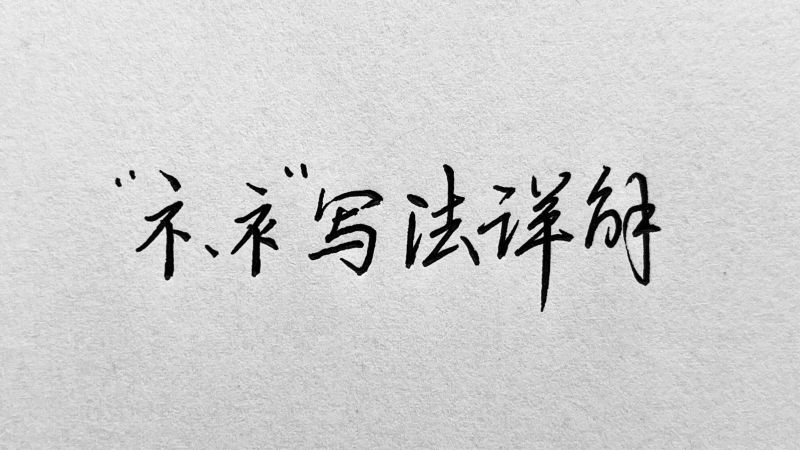 “礻、衤”写法详解